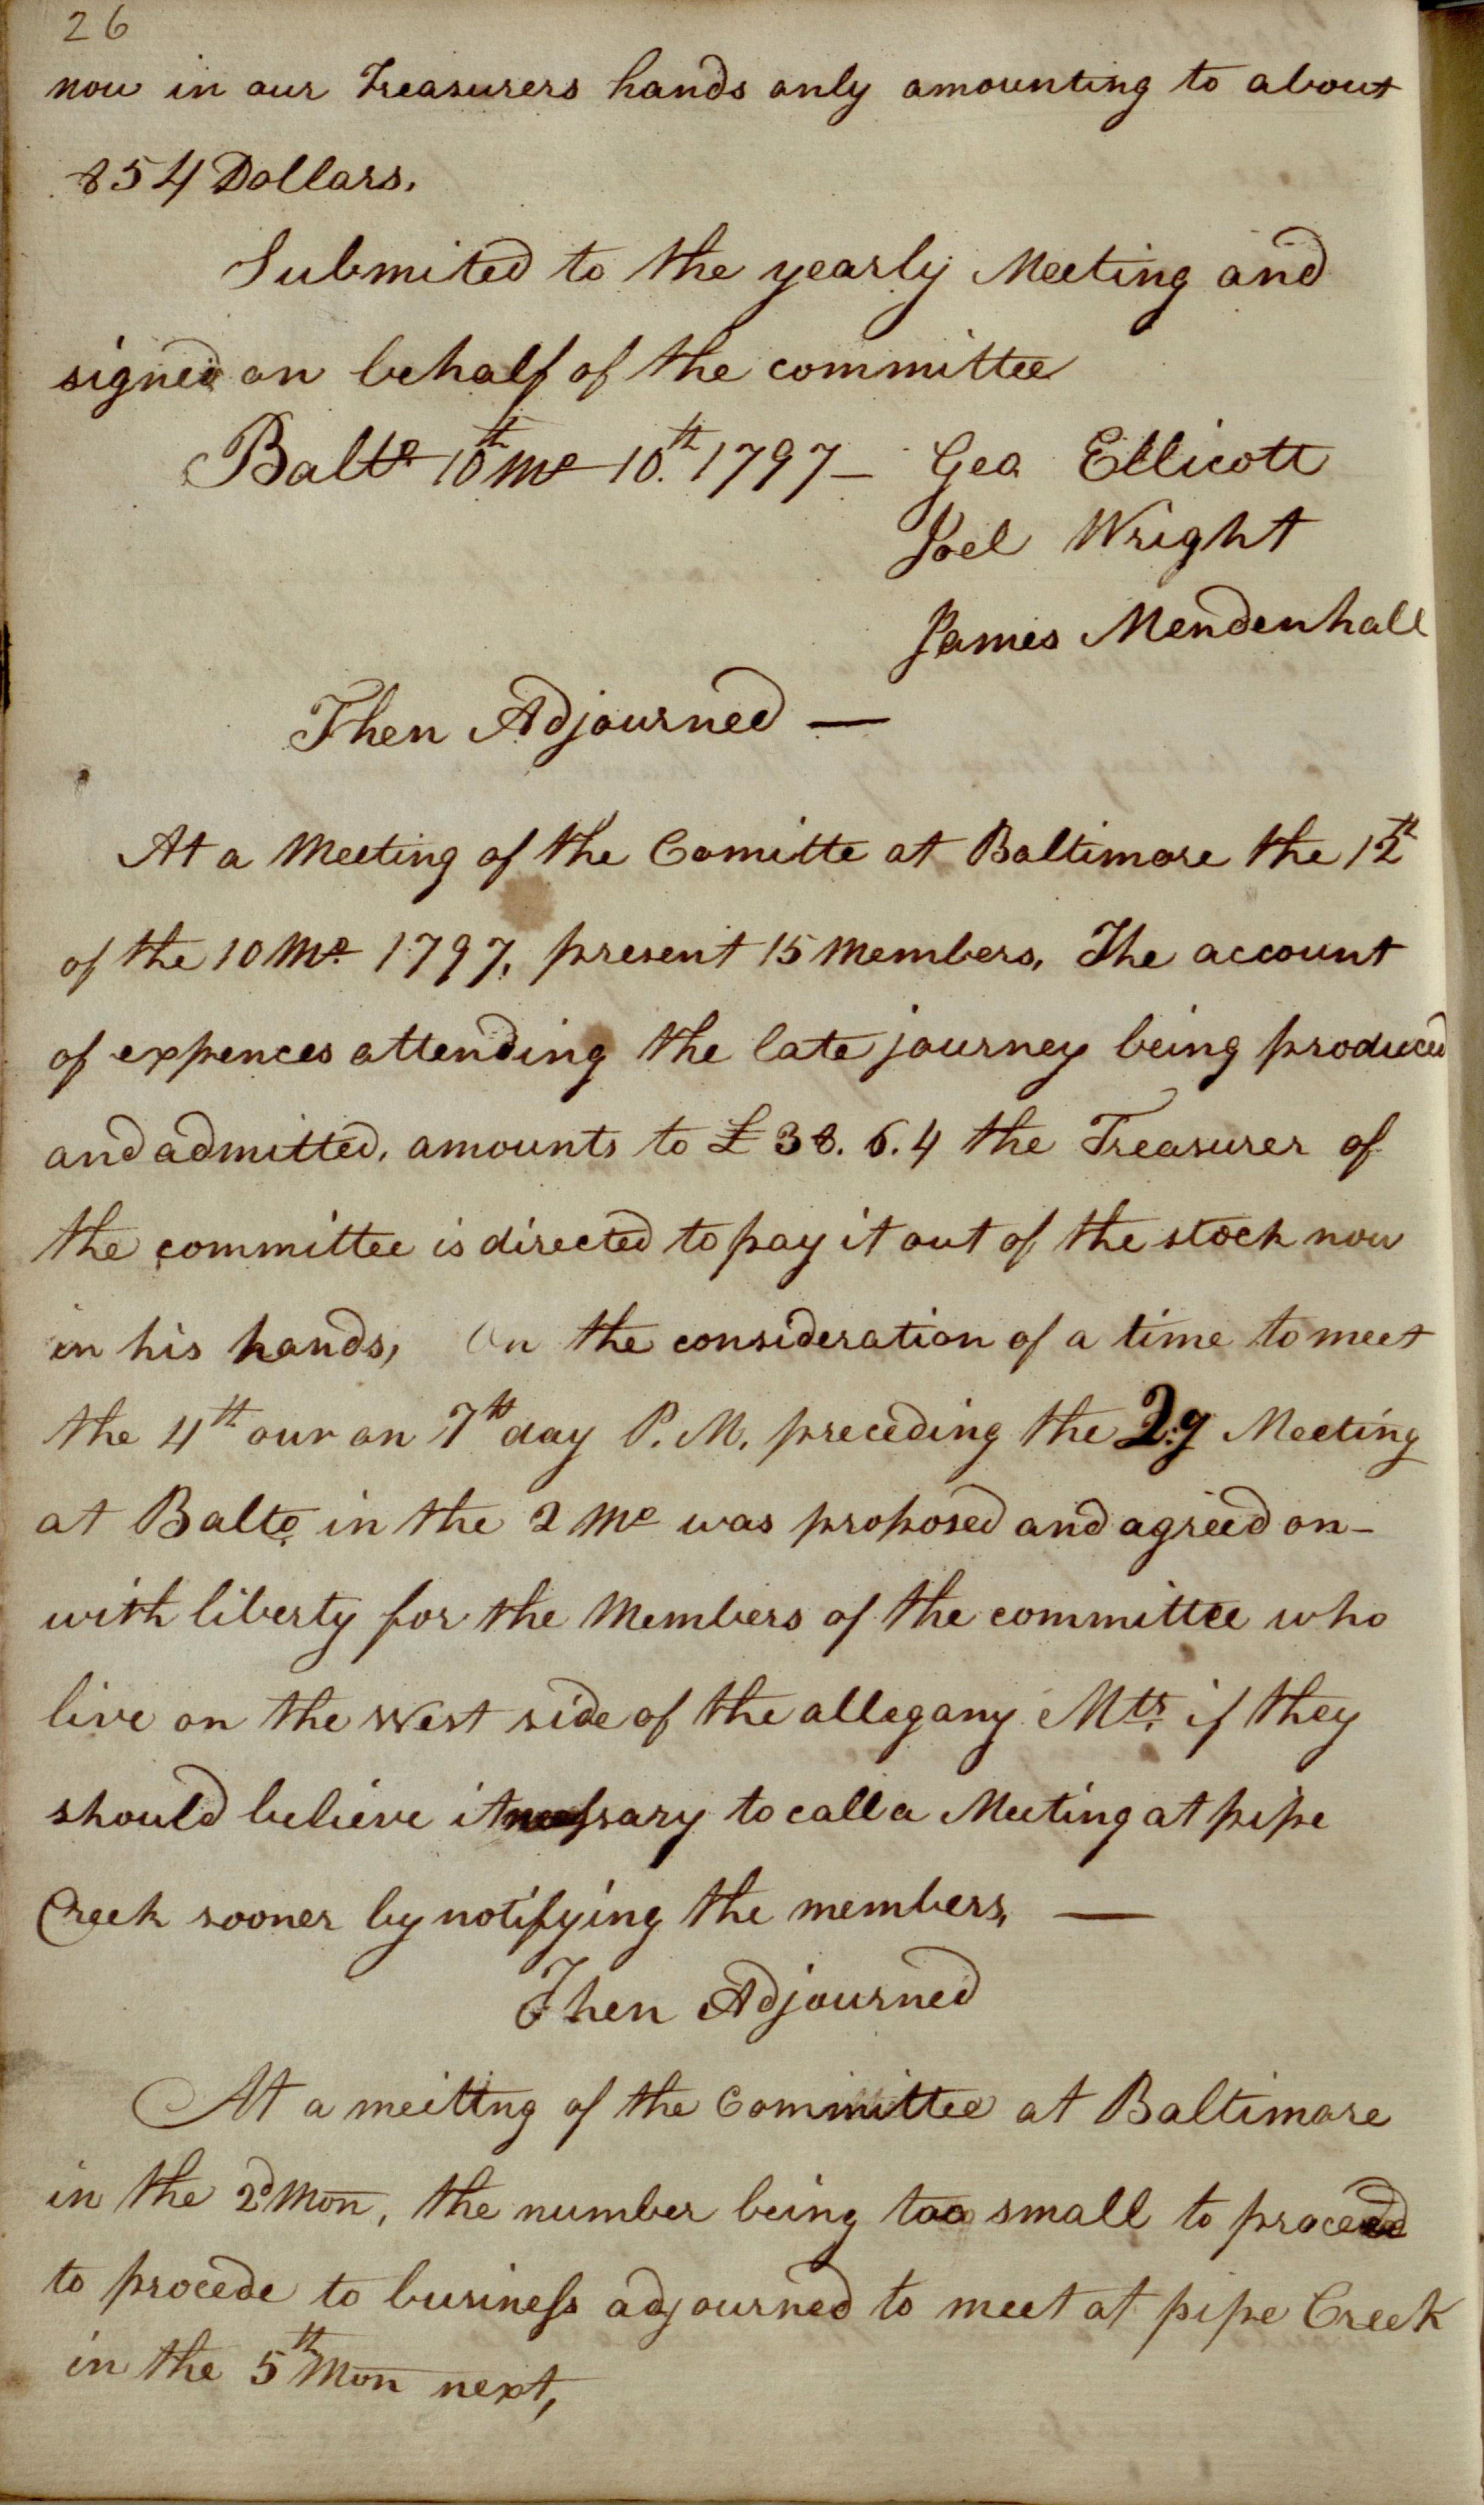 26
now in our Treasurers hands only amounting to about
854 Dollars.
Submited to the yearly Meeting and
signed on behalf of the committee
Balto 10th mo 10th. 1797 — Geo Ellicott
Joel Wright
James Mendenhall
Then Adjourned —
At a Meeting of the Comitte at Baltimore the 12th
of the 10 Mo. 1797, present 15 Members, The account
of expences attending the late journey being produced
and admitted, amounts to £ 38. 6. 4 the Treasurer of
the committee is directed to pay it out of the stock now
in his hands, On the consideration of a time to meet
the 4th our on 7th day P. M. preceding the Q:y Meeting
at Balto in the 2 Mo was proposed and agreed on -
with liberty for the Members of the committee who
live on the West side of the allegany Mts. if they
should believe it necessary to call a Meeting at pipe
Creek sooner by notifying the members, —
Then Adjourned
At a meittng of the Committee at Baltimore
in the 2d Mon, the number being too small to proceed
to procede to business adjourned to meet at pipe Creek
in the 5th Mon next,